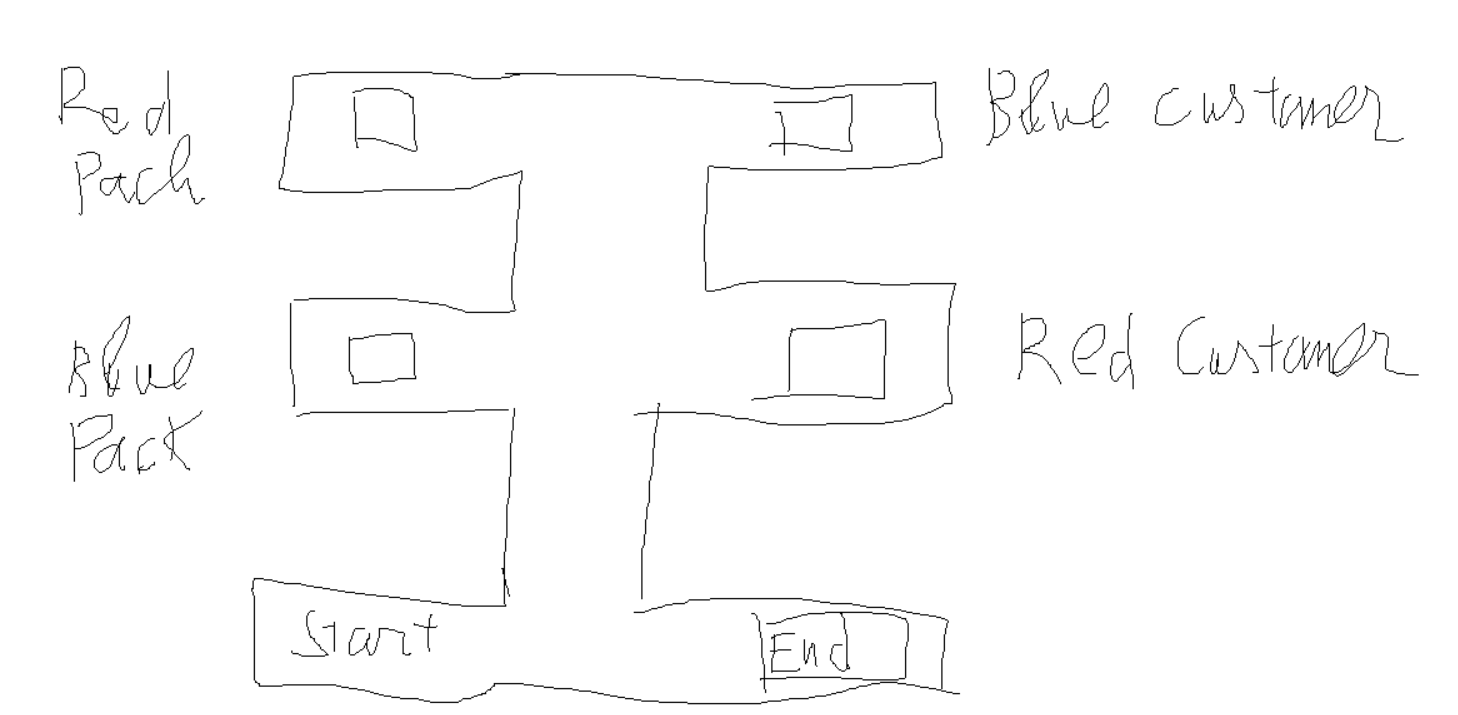 Red
Pack
Blue customer
Blue
Pack
Red Customer
Start
End